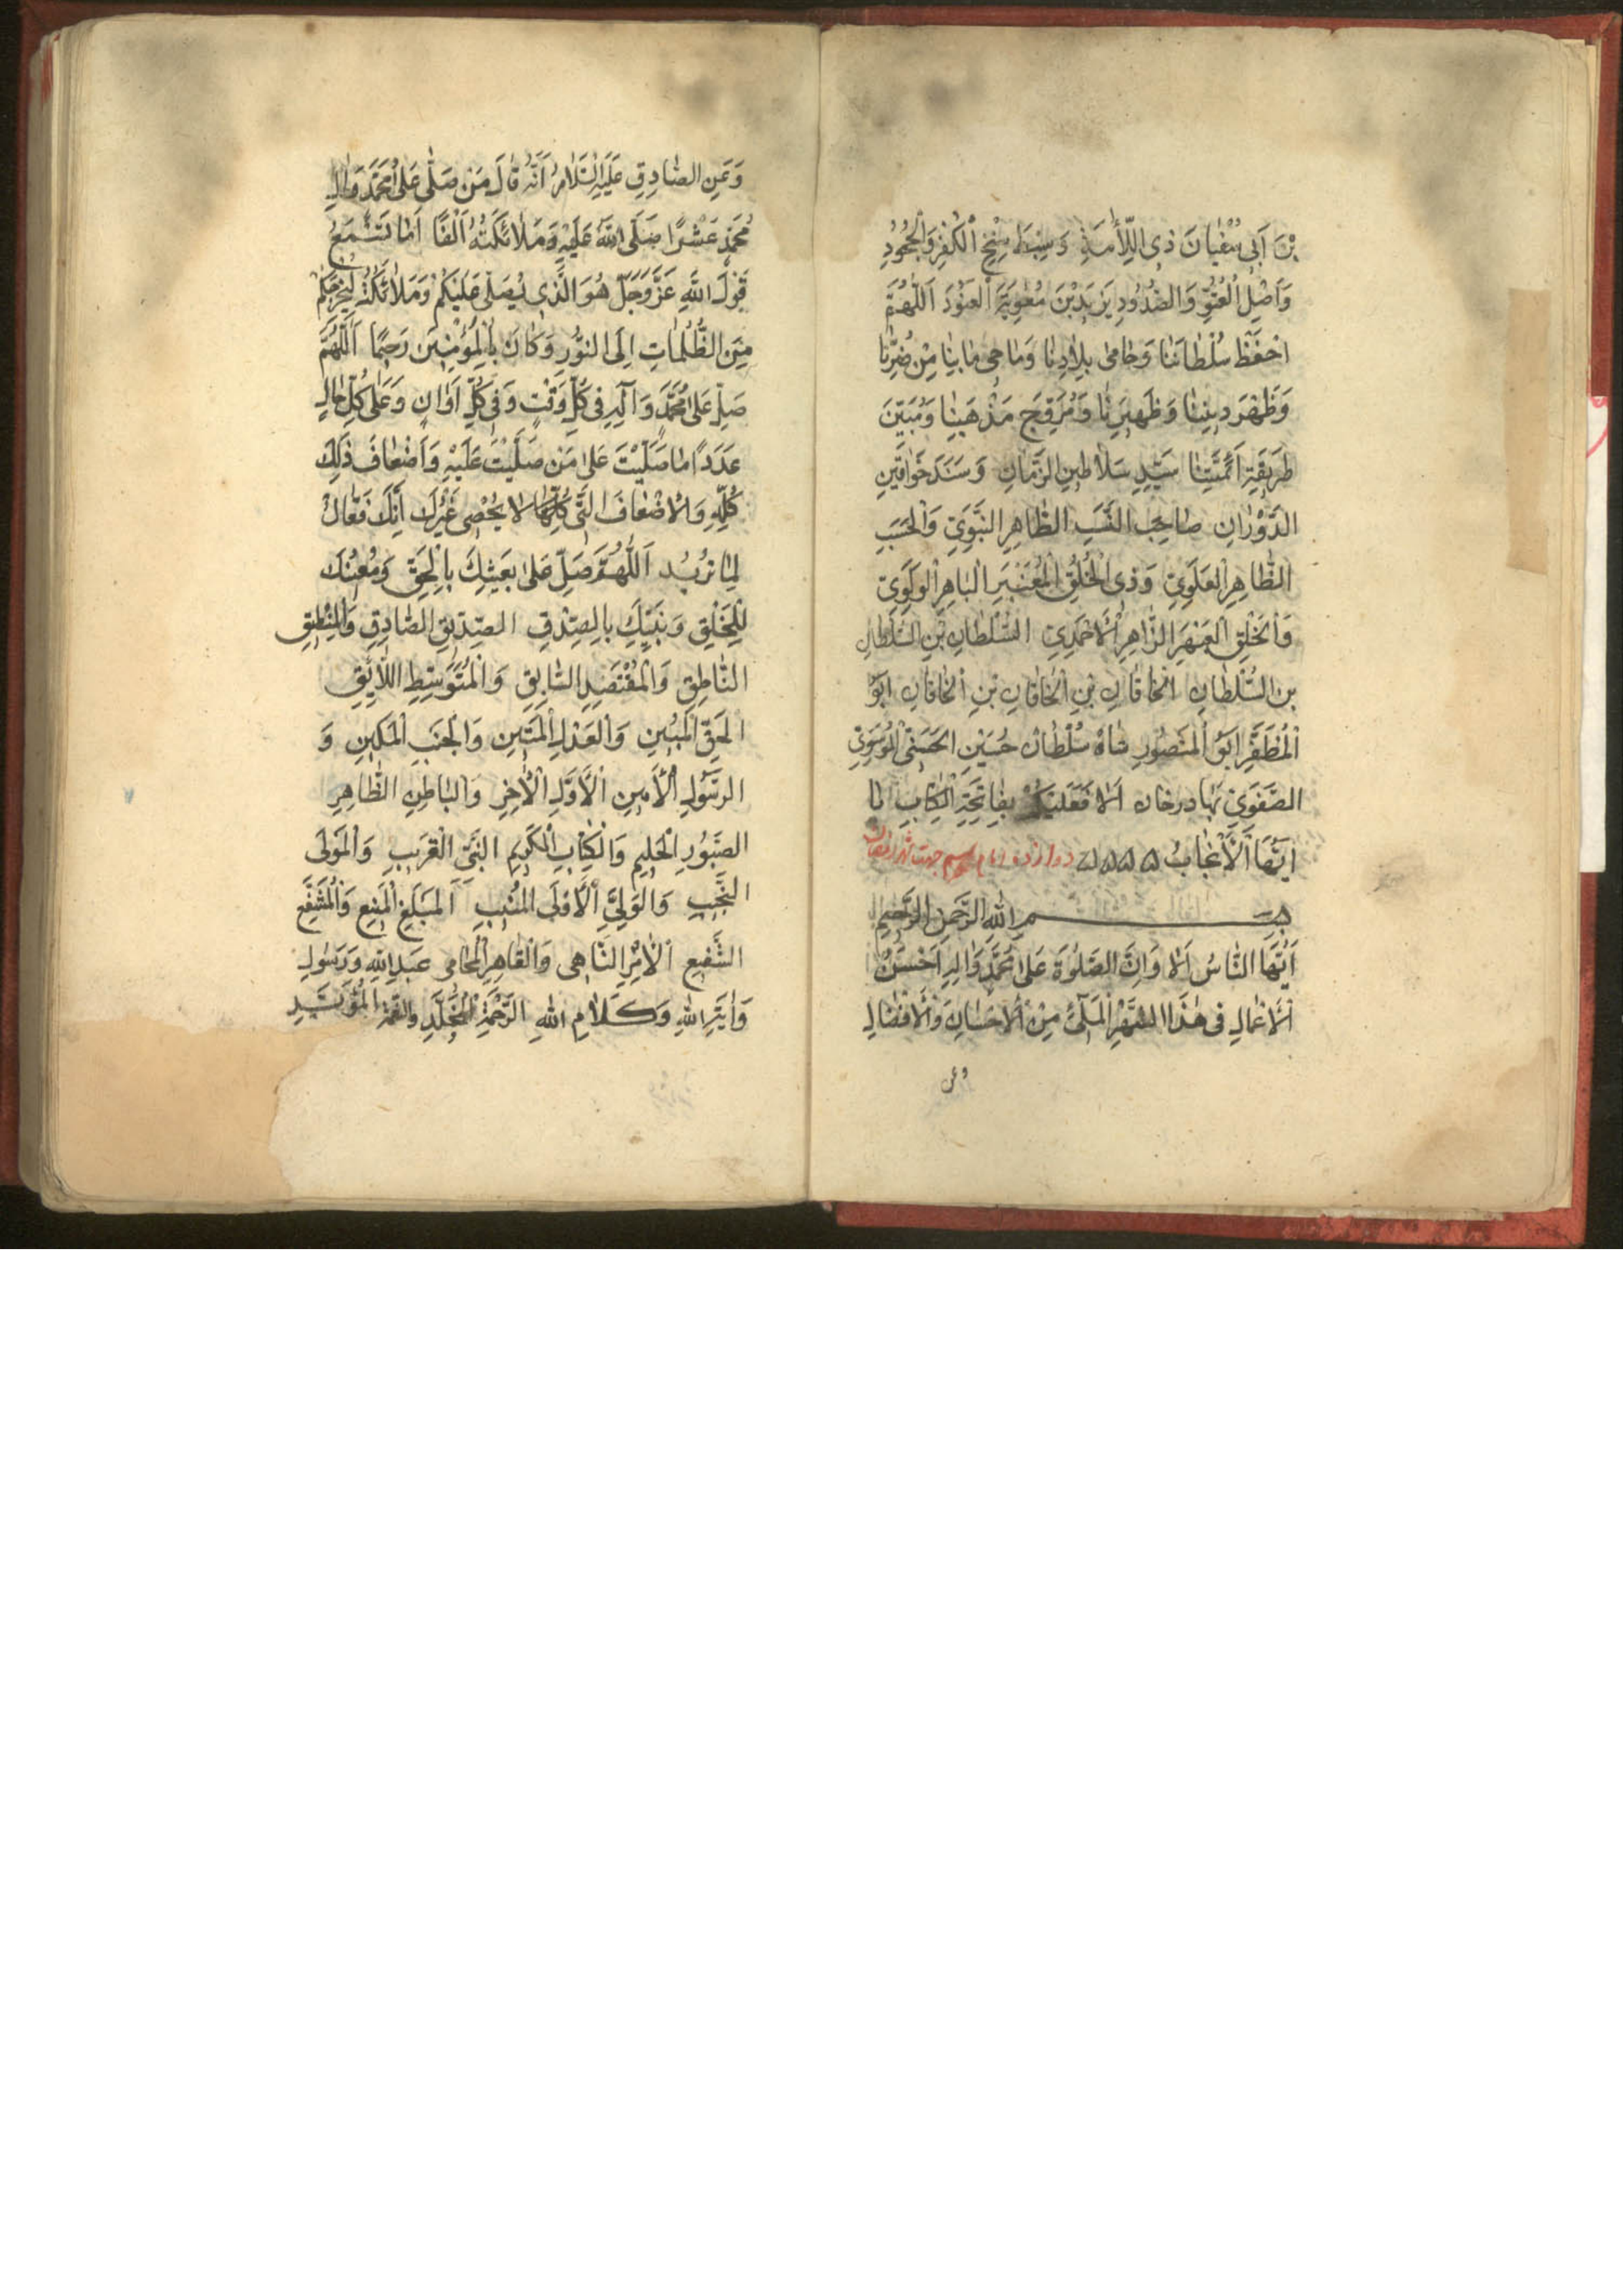 بْنَ اَبِي سُفْيَانَ ذِي اللِّأْمَةِ وَسِبْطَ سِنْخِ الْكُفْرِ وَالْجُحُودِ
وَاَصْلِ الْعُتُوِّ وَالصُّدُودِ يَزِيدَ بْنَ مُعٰوِيَةَ الْعَنُودَ اَللّٰهُمَّ
احْفَظْ سُلْطَانَنَا وَحَامِى بِلَادِنَا وَمَاحِى مَا بِنَا مِنْ ضُرِّنَا
وَظَهْرَ دِينِنَا وَظَهِيرِنَا وَمُرَوِّجَ مَذْهَبِنَا وَمُبَيِّنَ
طَرِيقَةِ اَئِمَّتِنَا سَيِّدِ سَلَاطِينِ الزَّمَانِ وَسَنَدَ خَوَاقِينِ
الدَّوْرَانِ صَاحِبَ النَّسَبِ الطَّاهِرِ النَّبَوِيِّ وَالْحَسَبِ
الظَّاهِرِ الْعَلَوِيِّ وَذِي الْخُلُقِ الْمُعَنْبَرِ الْبَاهِرِ الْوَلَوِيِّ
وَالْخَلْقِ الْعَبْهَرِ الزَّاهِرِ الْاَحْمَدِيِّ السُّلْطَانِ بْنِ السُّلْطَانِ
بْنِ السُّلْطَانِ الْخَاقَانِ بْنِ الْخَاقَانِ بْنِ الْخَاقَانِ اَبُو
الْمُظَفَّرِ اَبُو الْمَنْصُورِ شَاهْ سُلْطَانْ حُسَيْنِ الْحُسَيْنِيِّ الْمُوسَوِيِّ
الصَّفَوِيِّ بَهَادِرْخَانْ اَلَا فَعَلَيْكُمْ بِفَاتِحَةِ الْكِتَابِ يَا
اَيُّهَا الْاَحْبَابُ دوازده امام جهت شهر رمضان
بِسْمِ اللّٰهِ الرَّحْمٰنِ الرَّحِيمِ
اَيُّهَا النَّاسُ اَلَا وَاِنَّ الصَّلٰوةَ عَلٰى مُحَمَّدٍ وَاٰلِهِ اَحْسَنُ
الْاَعْمَالِ فِى هٰذَا الشَّهْرِ الْمَلِئِ مِنَ الْاِحْسَانِ وَالْاَفْضَالِ
وعن
وَعَنِ الصَّادِقِ عَلَيْهِ السَّلَامُ اَنَّهُ قَالَ مَنْ صَلّٰى عَلٰى مُحَمَّدٍ وَاٰلِ
مُحَمَّدٍ عَشْرًا صَلَّى اللّٰهُ عَلَيْهِ وَمَلَائِكَتُهُ اَلْفًا اَمَا تَسْمَعُ
قَوْلَ اللّٰهِ عَزَّ وَجَلَّ هُوَ الَّذِي يُصَلِّى عَلَيْكُمْ وَمَلَائِكَتُهُ لِيُخْرِجَكُمْ
مِنَ الظُّلُمَاتِ اِلَى النُّورِ وَكَانَ بِالْمُؤْمِنِينَ رَحِيمًا اَللّٰهُمَّ
صَلِّ عَلٰى مُحَمَّدٍ وَآلِهِ فِى كُلِّ وَقْتٍ وَفِى كُلِّ اَوَانٍ وَعَلٰى كُلِّ حَالٍ
عَدَدَ مَا صَلَّيْتَ عَلٰى مَنْ صَلَّيْتَ عَلَيْهِ وَاَضْعَافَ ذٰلِكَ
كُلِّهِ وَالْاَضْعَافَ الَّتِى كُلُّهَا لَا يُحْصِى غَيْرُكَ اِنَّكَ فَعَّالٌ
لِمَا تُرِيدُ اَللّٰهُمَّ صَلِّ عَلٰى بَعِيثِكَ بِالْحَقِّ وَمُعِينِكَ
لِلْخَلْقِ وَنَبِيِّكَ بِالصِّدْقِ الصِّدِّيقِ الصَّادِقِ وَالْمِنْطِيقِ
النَّاطِقِ وَالْمُقْتَصِدِ السَّابِقِ وَالْمُتَوَسِّطِ اللَّائِقِ
الْحَقِّ الْمُبِينِ وَالْعَدْلِ الْمَتِينِ وَالْجَنْبِ الْمَكِينِ وَ
الرَّسُولِ الْاَمِينِ الْاَوَّلِ الْاٰخِرِ وَالْبَاطِنِ الظَّاهِرِ
الصَّبُورِ الْحَلِيمِ وَالْكِتَابِ الْكَرِيمِ النَّبِىِّ الْقَرِيبِ وَالْمَوْلَى
النَّجِيبِ وَالْوَلِىِّ الْاَوْلَى الْمُنِيبِ الْمُبَلِّغِ الْمَنِيعِ وَالْمُشَفَّعِ
الشَّفِيعِ الْاٰمِرِ النَّاهِى وَالْقَاهِرِ الْحَامِى عَبْدِ اللّٰهِ وَرَسُولِ
وَاٰيَةِ اللّٰهِ وَكَلَامِ اللّٰهِ الرَّحْمَةِ الْمُخَلَّدِ وَالنِّعْمَةِ الْمُؤَيَّدِ